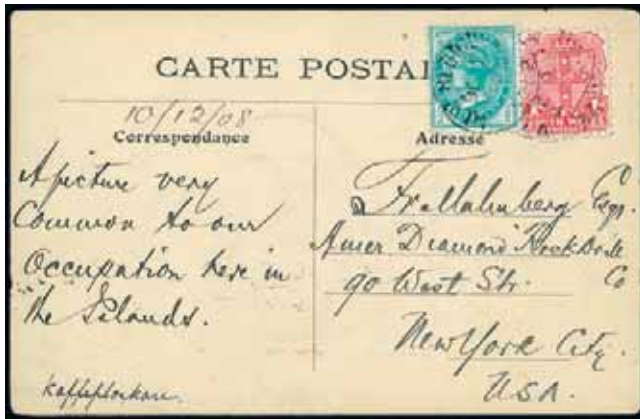 CARTE POSTAL
10/12/08
Correspondance
A picture very
Common to our
Occupation here in
the Islands.
Adresse
Fr. Malmberg Esqr.
Amer Diamond Rock Drill
Co
90 West Str.
New York City.
USA.